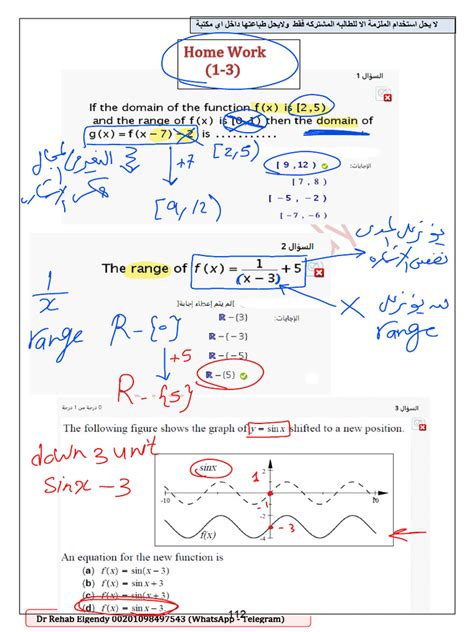 لا يحل استخدام الملزمة الا للطالبه المشتركه فقط ولايحل طباعتها داخل اي مكتبة
Home Work
(1-3)
السؤال 1
If the domain of the function f(x) is [2,5)
and the range of f(x) is [0,1) then the domain of
g(x) = f(x − 7) − 2 is ...........
[2,5)
+7
[9,12)
الإجابات:
[ 9 ,12 )
[ 7 , 8 )
[ −5 , −2 )
[ −7 , −6 )
السؤال 2
The range of f(x) = 1/(x − 3) + 5
[لم يتم إعطاء إجابة]
الإجابات:
ℝ − {3}
ℝ − {−3}
ℝ − {−5}
ℝ − {5}
1/x
range
R − {0}
+5
R − {5}
range
السؤال 3
0 درجة من 1 درجة
The following figure shows the graph of y = sin x shifted to a new position.
down 3 unit
sinx − 3
sinx
1
-1
-3
2
-2
-4
-10
10
f(x)
An equation for the new function is
(a) f(x) = sin(x − 3)
(b) f(x) = sin x + 3
(c) f(x) = sin(x + 3)
(d) f(x) = sin x − 3
112
Dr Rehab Elgendy 00201098497543 (WhatsApp - Telegram)